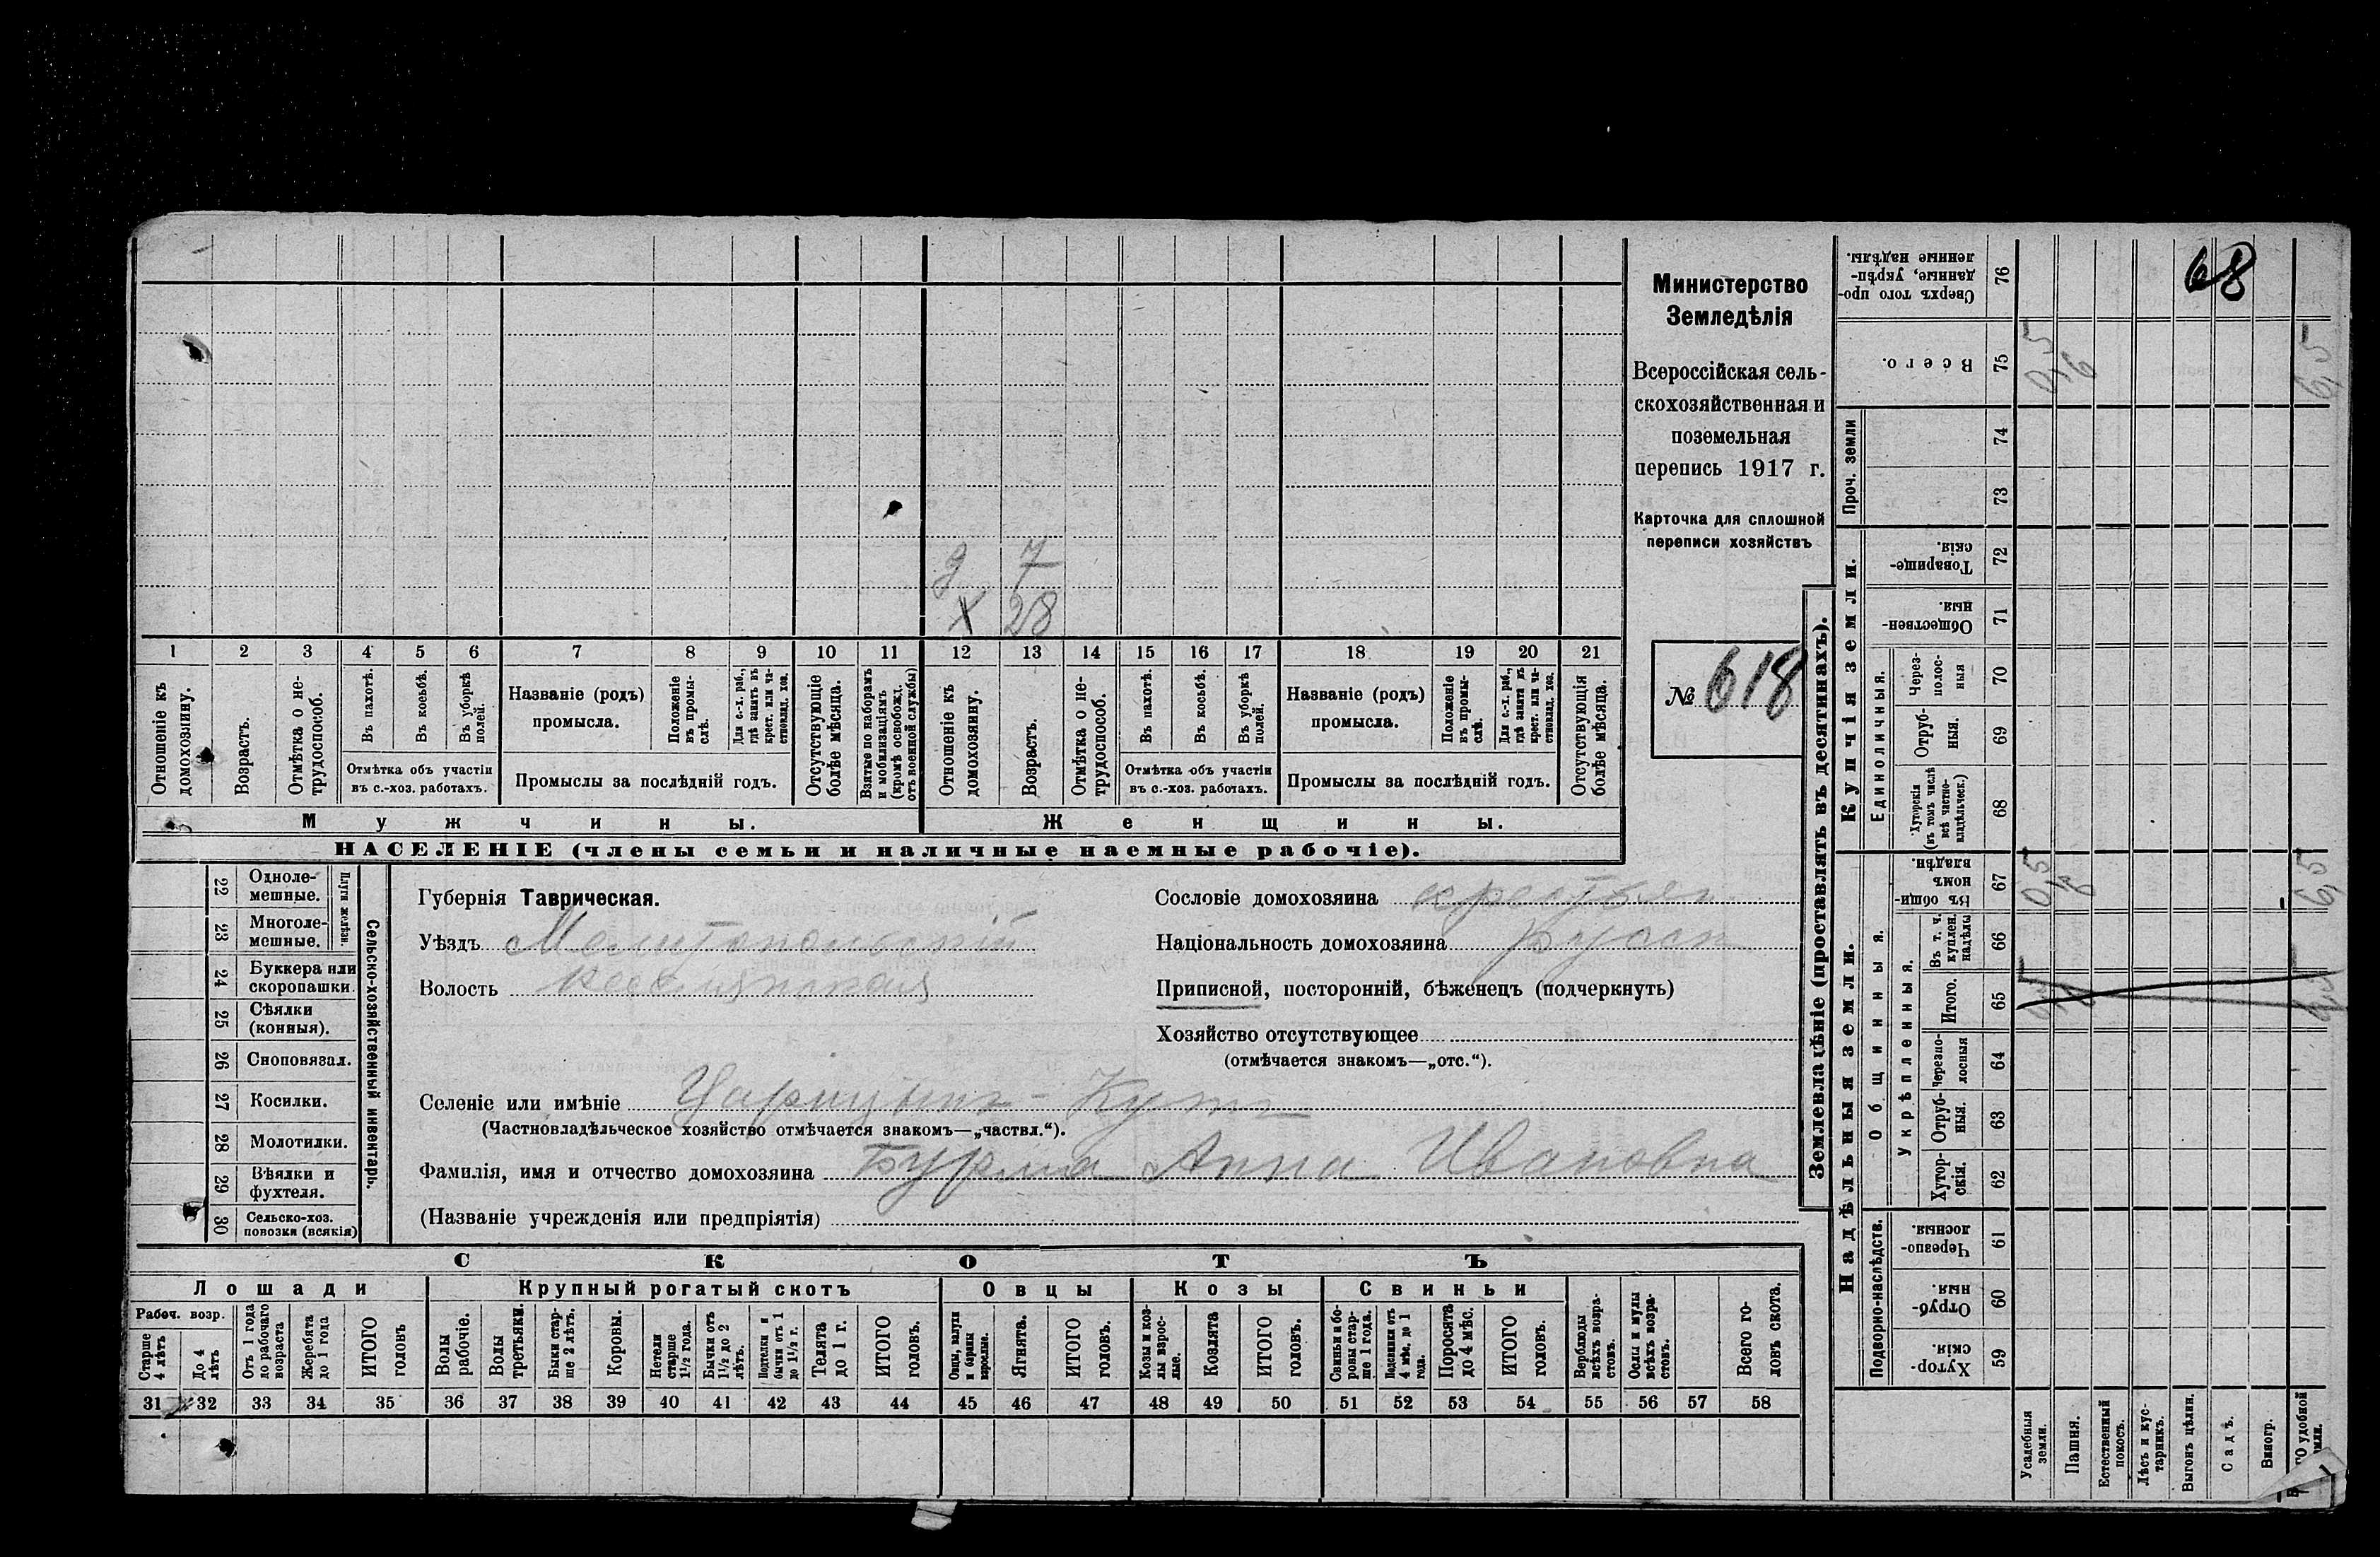 Министерство
Земледѣлія
Всероссійская сель-
скохозяйственная и
поземельная
перепись 1917 г.
Карточка для сплошной
переписи хозяйствъ
№ 618
д 7
х 28
1 2 3 4 5 6 7 8 9 10 11 12 13 14 15 16 17 18 19 20 21
Отношеніе къ домохозяину.
Возрастъ.
Отмѣтка о не-трудоспособ.
Въ пахотѣ.
Въ косьбѣ.
Въ уборкѣ полей.
Отмѣтка объ участіи
въ с.-хоз. работахъ.
Названіе (родъ)
промысла.
Положеніе въ промы-слѣ.
Для с.-х. раб., гдѣ занятъ въ крест. или ча-стновлад. хоз.
Промыслы за послѣдній годъ.
Отсутствующіе болѣе мѣсяца.
Взятые по наборамъ и мобилизаціямъ (кромѣ освобожд. отъ военной службы)
Отношеніе къ домохозяину.
Возрастъ.
Отмѣтка о не-трудоспособ.
Въ пахотѣ.
Въ косьбѣ.
Въ уборкѣ полей.
Отмѣтка объ участіи
въ с.-хоз. работахъ.
Названіе (родъ)
промысла.
Положеніе въ промы-слѣ.
Для с.-х. раб., гдѣ занята въ крест. или ча-стновлад. хоз.
Промыслы за послѣдній годъ.
Отсутствующія болѣе мѣсяца.
Мужчины. Женщины.
НАСЕЛЕНІЕ (члены семьи и наличные наемные рабочіе).
Сельско-хозяйственный инвентарь.
Плуги желѣзн.
22 Одноле-мешные.
23 Многоле-мешные.
24 Буккера или скоропашки.
25 Сѣялки (конныя).
26 Сноповязал.
27 Косилки.
28 Молотилки.
29 Вѣялки и фухтеля.
30 Сельско-хоз. повозки (всякія)
Губернія Таврическая.
Уѣздъ Мелитопольскій
Волость
Сословіе домохозяина крестьян.
Національность домохозяина русск
Приписной, посторонній, бѣженецъ (подчеркнуть)
Хозяйство отсутствующее
(отмѣчается знакомъ—„отс.“).
Селеніе или имѣніе Царицынъ-Кутъ
(Частновладѣльческое хозяйство отмѣчается знакомъ—„частвл.“).
Фамилія, имя и отчество домохозяина Бурма Анна Ивановна
(Названіе учрежденія или предпріятія)
СКОТЪ
Лошади Крупный рогатый скотъ Овцы Козы Свиньи
Рабоч. возр.
Старше 4 лѣтъ
До 4 лѣтъ
Отъ 1 года до рабочаго возраста
Жеребята до 1 года
ИТОГО головъ
Волы рабочіе.
Волы третьяки.
Быки стар-ше 2 лѣтъ.
Коровы.
Нетели старше 1½ года.
Бычки отъ 1½ до 2 лѣтъ.
Подтелки и бычки отъ 1 до 1½ г.
Телята до 1 г.
ИТОГО головъ.
Овцы, валухи и бараны взрослые.
Ягнята.
ИТОГО головъ.
Козы и коз-лы взрос-лые.
Козлята
ИТОГО головъ.
Свиньи и бо-ровы стар-ше 1 года.
Подсвинки отъ 4 мѣс. до 1 года.
Поросята до 4 мѣс.
ИТОГО головъ.
Верблюды всѣхъ возра-стовъ.
Ослы и мулы всѣхъ возра-стовъ.
Всего го-ловъ скота.
31 32 33 34 35 36 37 38 39 40 41 42 43 44 45 46 47 48 49 50 51 52 53 54 55 56 57 58
Землевладѣніе (проставлять въ десятинахъ).
68
Сверхъ того про-данные, укрѣп-ленные надѣлы. 76
Всего. 75 0,5 6 6,5
Проч. земли 74 73
Купчія земли.
Товарище-скія. 72
Обществен-ныя. 71
Единоличныя.
Через-полос-ныя 70
Отруб-ныя. 69
Хуторскія (въ томъ числѣ всѣ частно-владѣльческ.) 68
Надѣльныя земли.
Общинныя.
Въ общи-номъ владѣн. 67 0,5 6 6,5
Укрѣпленныя.
Въ т. ч. куплен. надѣлы 66
Итого. 65
Черезпо-лосныя 64
Отруб-ныя. 63
Хутор-скія. 62
Подворно-наслѣдств.
Черезпо-лосныя. 61
Отруб-ныя. 60
Хутор-скія. 59
Усадебныя земли.
Пашня.
Естественный покосъ.
Лѣсъ и кус-тарникъ.
Выгонъ цѣлин.
Садъ.
Виногр.